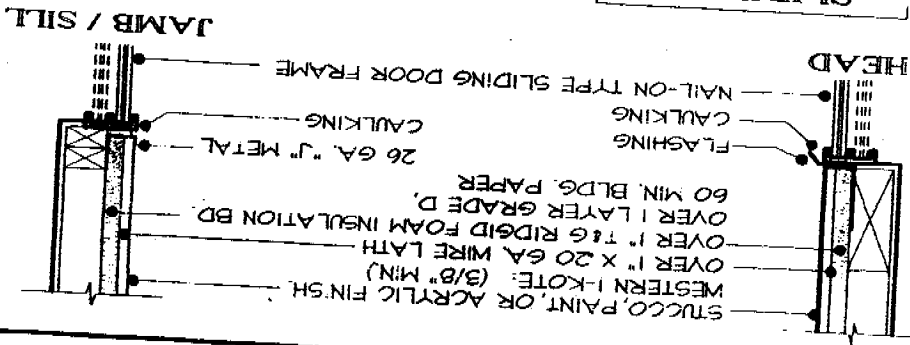 STUCCO, PAINT, OR ACRYLIC FINISH
WESTERN 1-KOTE: (3/8" MIN.)
OVER 1" X 20 GA. WIRE LATH
OVER 1" T&G RIDGID FOAM INSULATION BD
OVER 1 LAYER GRADE D,
60 MIN. BLDG. PAPER
FLASHING
CAULKING
26 GA. "J" METAL
CAULKING
NAIL-ON TYPE SLIDING DOOR FRAME
HEAD
JAMB / SILL